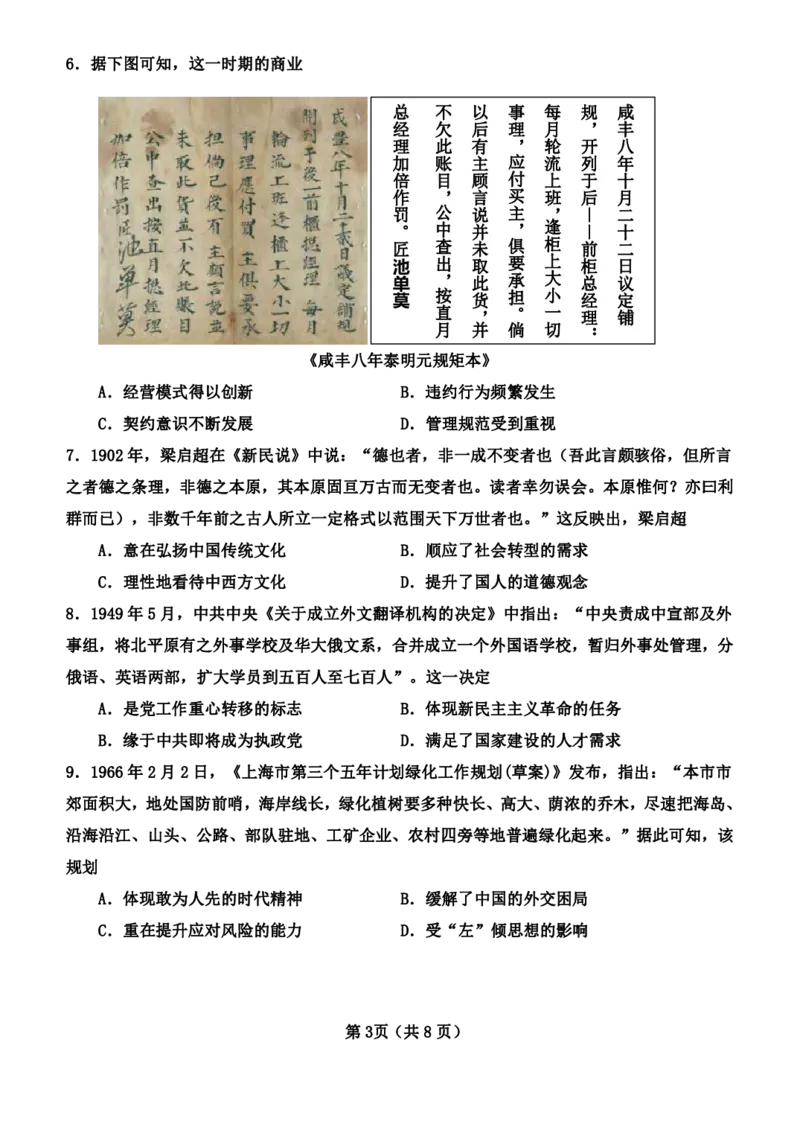 6．据下图可知，这一时期的商业
咸豐八年十月二十贰日議定鋪規
開列于後一前櫃総經理 每月
輪流上班逢櫃上大小一切
事理應付買主俱要承
担倘已後有主顧言說並
未取此貨並不欠此賬目
公中查出按直月総經理
加倍作罚 匠池单莫
咸丰八年十月二十二日议定铺
规，开列于后——前柜总经理：
每月轮流上班，逢柜上大小一切
事理，应付买主，俱要承担。倘
以后有主顾言说并未取此货，并
不欠此账目，公中查出，按直月
总经理加倍作罚。匠池单莫
《咸丰八年泰明元规矩本》
A．经营模式得以创新 B．违约行为频繁发生
C．契约意识不断发展 D．管理规范受到重视
7．1902 年，梁启超在《新民说》中说：“德也者，非一成不变者也（吾此言颇骇俗，但所言
之者德之条理，非德之本原，其本原固亘万古而无变者也。读者幸勿误会。本原惟何？亦曰利
群而已），非数千年前之古人所立一定格式以范围天下万世者也。”这反映出，梁启超
A．意在弘扬中国传统文化 B．顺应了社会转型的需求
C．理性地看待中西方文化 D．提升了国人的道德观念
8．1949 年 5 月，中共中央《关于成立外文翻译机构的决定》中指出：“中央责成中宣部及外
事组，将北平原有之外事学校及华大俄文系，合并成立一个外国语学校，暂归外事处管理，分
俄语、英语两部，扩大学员到五百人至七百人”。这一决定
A．是党工作重心转移的标志 B．体现新民主主义革命的任务
B．缘于中共即将成为执政党 D．满足了国家建设的人才需求
9．1966 年 2 月 2 日，《上海市第三个五年计划绿化工作规划(草案)》发布，指出：“本市市
郊面积大，地处国防前哨，海岸线长，绿化植树要多种快长、高大、荫浓的乔木，尽速把海岛、
沿海沿江、山头、公路、部队驻地、工矿企业、农村四旁等地普遍绿化起来。”据此可知，该
规划
A．体现敢为人先的时代精神 B．缓解了中国的外交困局
C．重在提升应对风险的能力 D．受“左”倾思想的影响
第 3页（共 8 页）